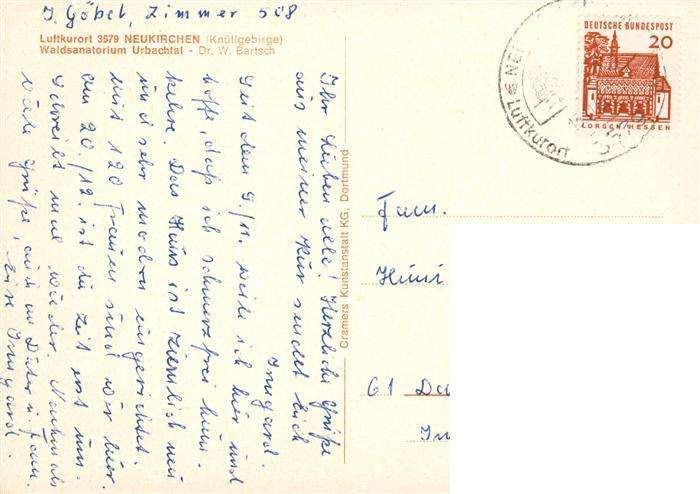 I. Göbel, Zimmer 508
Luftkurort 3579 NEUKIRCHEN (Knüllgebirge)
Waldsanatorium Urbachtal - Dr. W. Bartsch
Ihr Lieben alle! Herzliche Grüße
aus meiner Kur sendet Euch
Irmgard.
Seit dem 9./11. weile ich hier und
hoffe, daß ich schmerzfrei heim-
kehre. Das Haus ist ziemlich neu
und sehr modern eingerichtet.
Mit 120 Frauen sind wir hier.
Am 20./12. ist die Zeit erst um.
Schreibt mal wieder. Nochmals
viele Grüße, auch an Dieter u. Fam.
Eure Irmgard.
Cramers Kunstanstalt KG, Dortmund
DEUTSCHE BUNDESPOST
20
LORSCH/HESSEN
NEU
Luftkurort
Fam.
61 Da